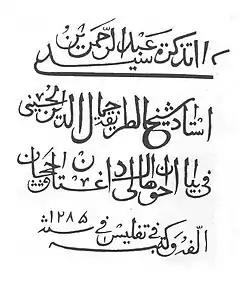 تذكرة سيد عبد الرحمن بن
استاذ شيخ الطريقة جمال الدين الحسيني
في بيان احوال اهالي داغستان وچچان
الفه وكتبه في تفليس في سنة ١٢٨٥